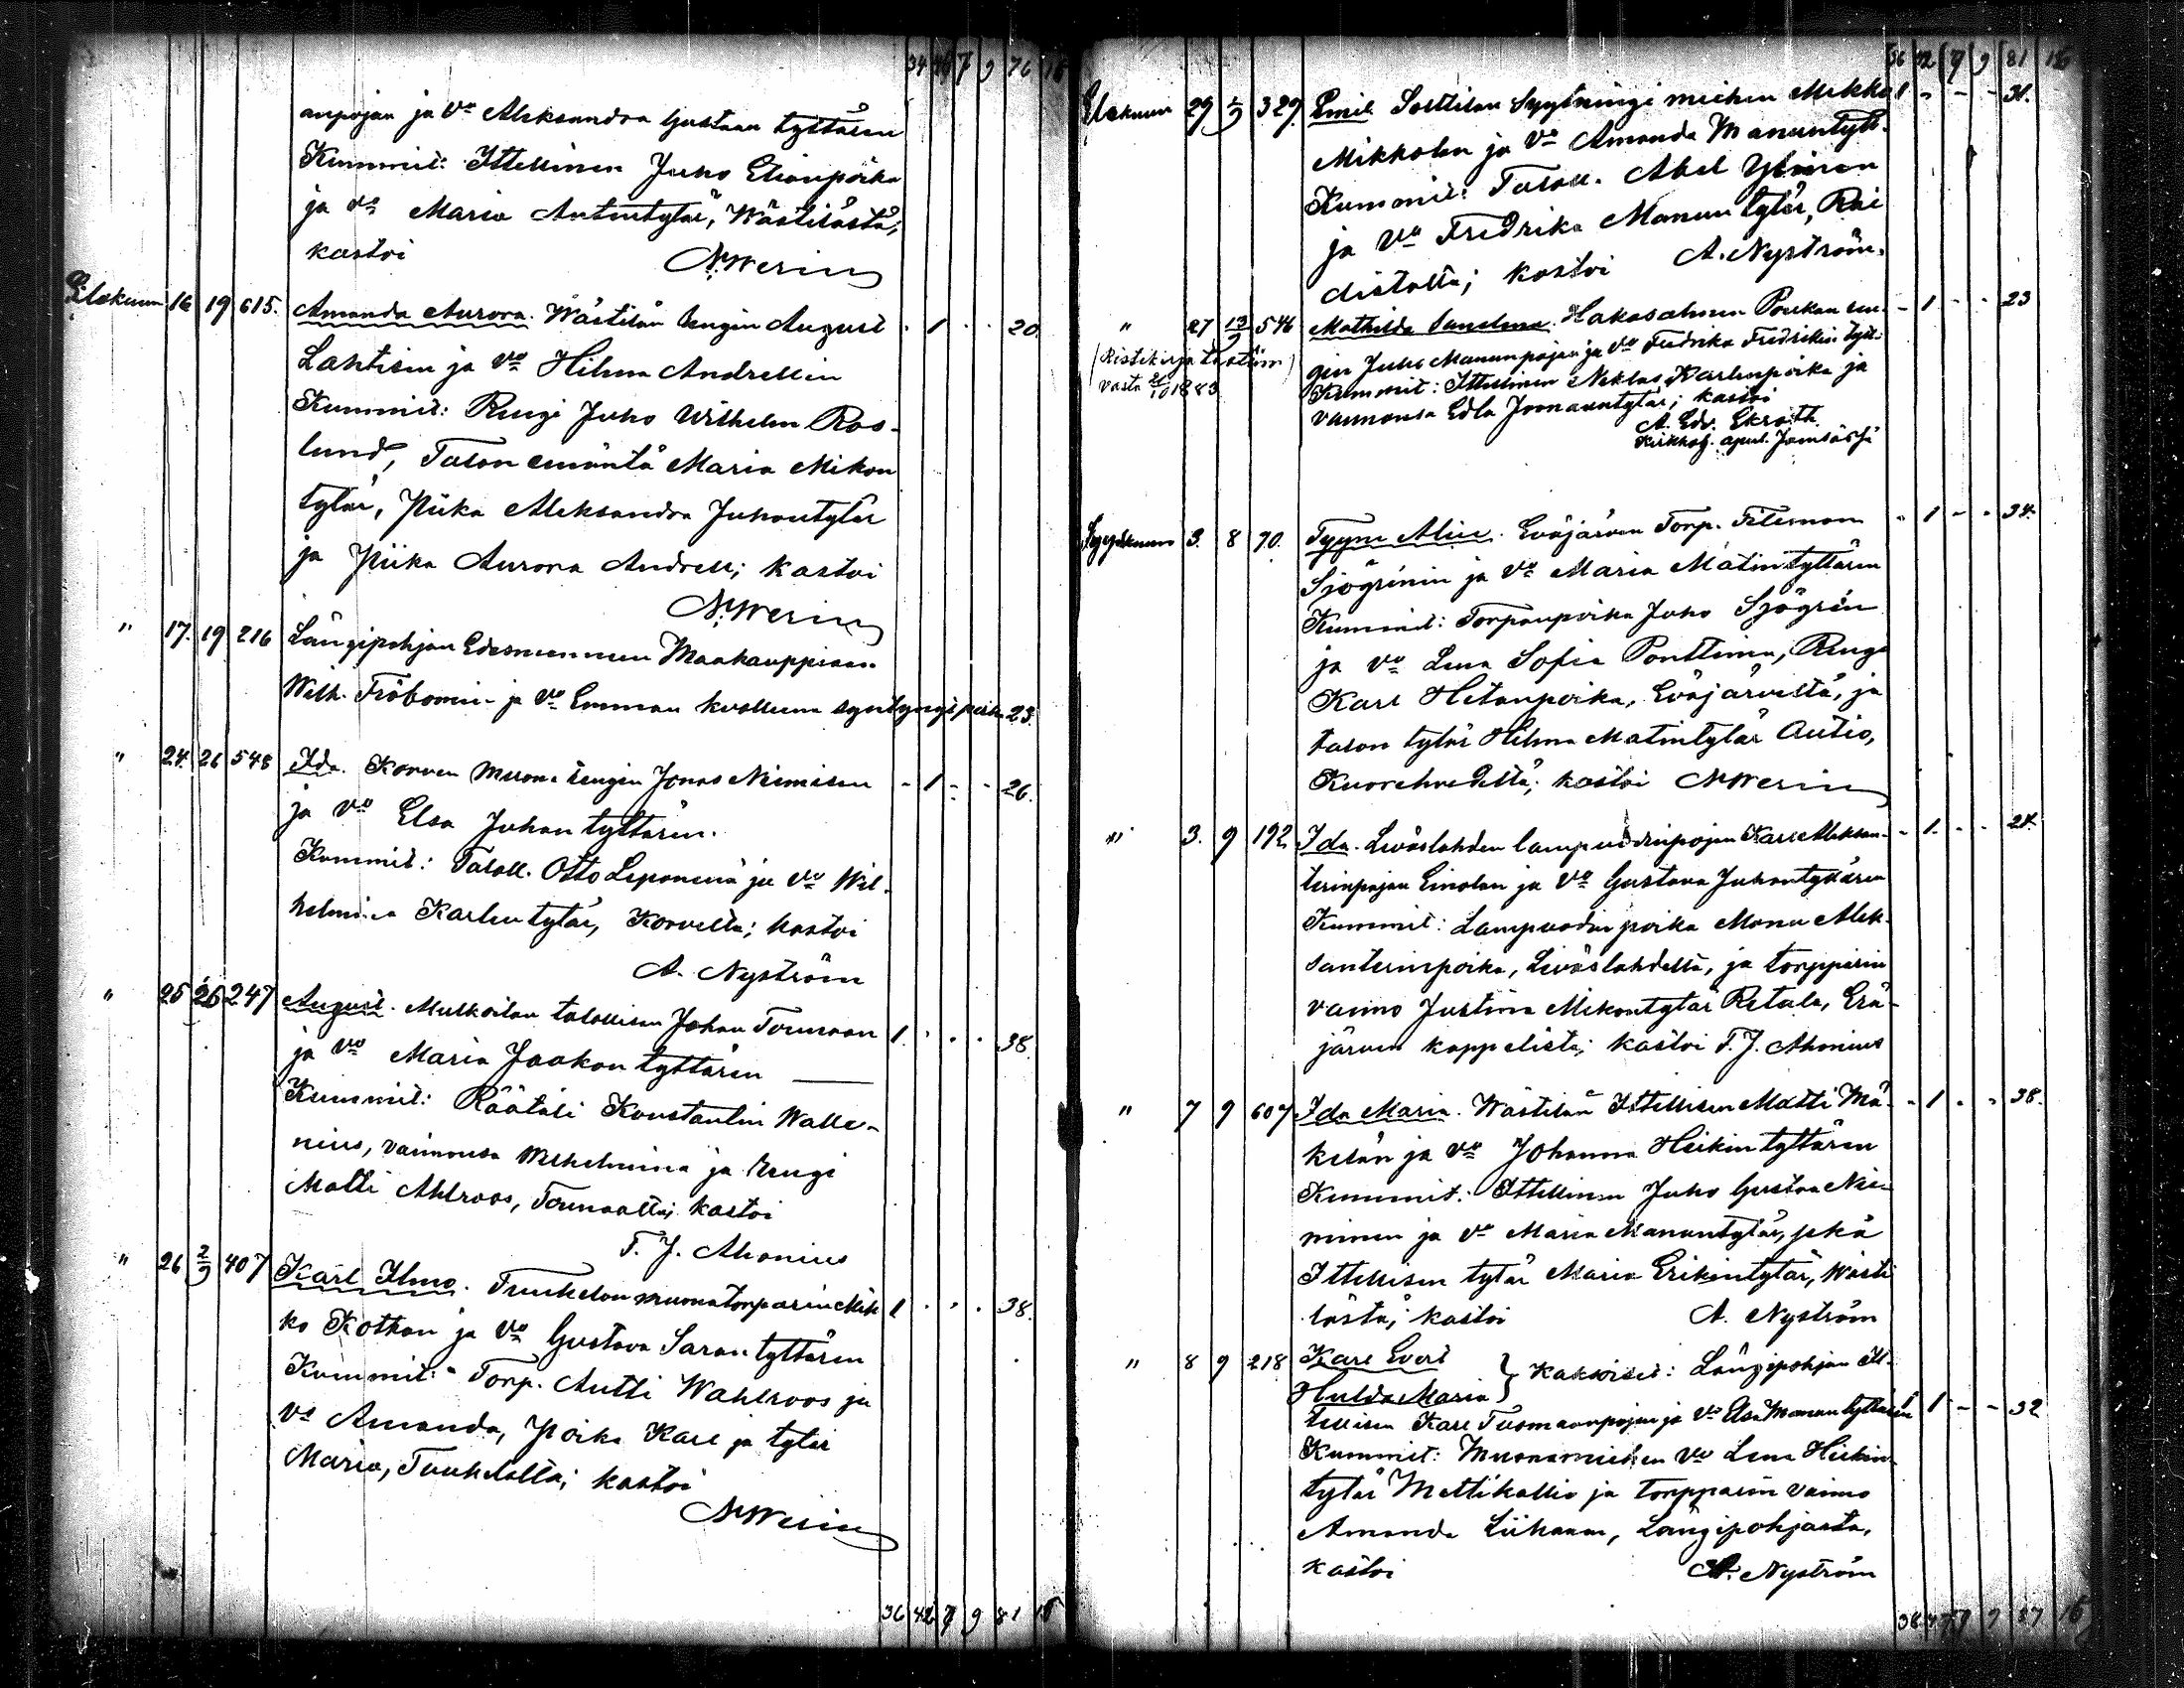 34 40 7 9 76 15
anpojan ja vo Aleksandra Gustaan tyttären
Kummit: Ittellinen Juho Elianpoika
ja vo Maria Antintytär, Wästilästä;
kastoi N. Werin
Elokuun 16 19 615. Amanda Aurora. Wästilän rengin August - 1 - - 20.
Lahtisen ja vo Hilma Andrellin
Kummit: Rengi Juho Wilhelm Ros-
lund, Talon emäntä Maria Mikon
tytär, Piika Aleksandra Juhontytär
ja Piika Aurora Andrell; kastoi
N. Werin
" 17. 19 216 Längipohjan Edesmenneen Maakauppiaan
Wilh. Fröbomin ja vo Emman kuolleena syntynyt poika 23.
" 24. 26 548 Ida. Korven muona rengin Jonas Niemisen - 1 - - 26.
ja vo Elsa Juhontyttären.
Kummit: Taloll. Otto Leponena ja vo Wil-
helmina Karlentytär, Korvelta; kastoi
A. Nyström
" 25 26 247 August. Mulkoilan talollisen Johan Tourunan 1. - - - 38.
ja vo Maria Jaakontyttären
Kummit: Räätäli Konstantin Walle-
nius, vaimonsa Wilhelmina ja Rengi
Matti Ahlroos, Tounaalta; kastoi
T. J. Ahonius
" 26 2/9 407 Karl Ilmo. Tuukelon muonatorparin Mik 1 - - - 38.
ko Kothan ja vo Gustava Saran tyttären
Kummit: Torp. Antti Wahlroos ja
vo Amanda, poika Karl ja tytär
Maria, Tuukelolta; kastoi
N. Werin
36 42 7 9 81 15
36 42 7 9 81 15
Elokuun 29 2/9 329. Emil. Solttilan Syytningi miehen Mikko 1 - - - 31.
Mikkolan ja vo Amanda Manuntytt.
Kummit: Taloll. Abel Ylinen
ja vo Fredrika Manuntytär, Rai
distalta; kastoi A. Nyström.
" 27 13/9 546 Mathilda Sanelma. Hakosalmen Poukan ren- - 1 - - 23
(Ristikirja tuotiin
vasta 21/10 1883)
gin Juho Manunpojan ja vo Fredrika Fredrikin tytt.
Kummit: Ittellinen Niklas Karlenpoika ja
vaimonsa Edla Joonaantytär; kastoi
A. Edv. Ekroth
Kirkkoh. apul. Jämsässä
Syyskuun 3. 8 70. Tyyne Aliie. Eväjärven Torp. Filemon - 1 - - 34.
Sjögrinin ja vo Maria Matintyttären
Kummit: Torpanpoika Juho Sjögrén
ja vo Lena Sofia Ponttinen, Rengi
Karl Hetanpoika, Eväjärveltä, ja
talon tytär Hilma Matintytär Autio,
Kuorehvedeltä; kastoi N. Werin
" 3. 9 192 Ida. Leväslahden lampuodinpojan Karl Aleksan- - 1. - - 24.
terinpojan Einolan ja vo Gustava Juhontyttären
Kummit: Lampuodin poika Manu Alek-
santerinpoika, Leväslahdelta, ja torpparin
vaimo Justina Mikontytär Retula, Erä-
järven kappelista; kastoi T. J. Ahonius
" 7 9 607 Ida Maria. Wästilän Ittellisen Matti Mä- - 1 - - 38.
kelän ja vo Johanna Heikintyttären
Kummit: Ittellinen Juho Gustaa Nie-
minen ja vo Maria Manuntytär, sekä
Ittellisen tytär Maria Erikintytär, Wästi
lästä; kastoi A. Nyström
" 8 9 218 Karl Evert
Hulda Maria } Kaksoiset: Längipohjan It-
tellisen Karl Tuomaanpojan ja vo Elsa Manun tyttären 1 - - 32
Kummit: Muonamiehen vo Lena Heikin-
tytär Mettikallio ja torpparin vaimo
Amanda Liikanen, Längipohjasta,
kastoi A. Nyström